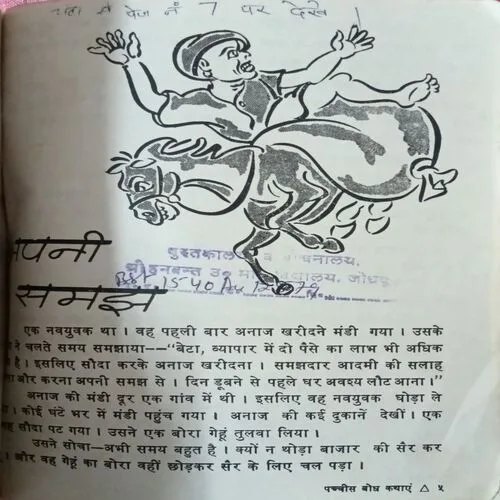 पेज नं 7 पर देखे
अपनी
समझ
पुस्तकालय
1540
एक नवयुवक था । वह पहली बार अनाज खरीदने मंडी गया । उसके
ने चलते समय समझाया—"बेटा, व्यापार में दो पैसे का लाभ भी अधिक
है । इसलिए सौदा करके अनाज खरीदना । समझदार आदमी की सलाह
और करना अपनी समझ से । दिन डूबने से पहले घर अवश्य लौट आना ।"
अनाज की मंडी दूर एक गांव में थी । इसलिए वह नवयुवक घोड़ा ले
। कोई घंटे भर में मंडी पहुंच गया । अनाज की कई दुकानें देखीं । एक
सौदा पट गया । उसने एक बोरा गेहूं तुलवा लिया ।
उसने सोचा—अभी समय बहुत है । क्यों न थोड़ा बाजार की सैर कर
। और वह गेहूं का बोरा वहीं छोड़कर सैर के लिए चल पड़ा ।
पच्चीस बोध कथाएं △ ५